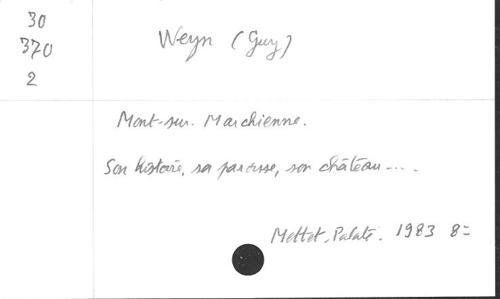 30
370
2
Weyn (Guy)
Mont-sur-Marchienne.
Son histoire, sa paroisse, son château....
Mettet, Palate. 1983 8=